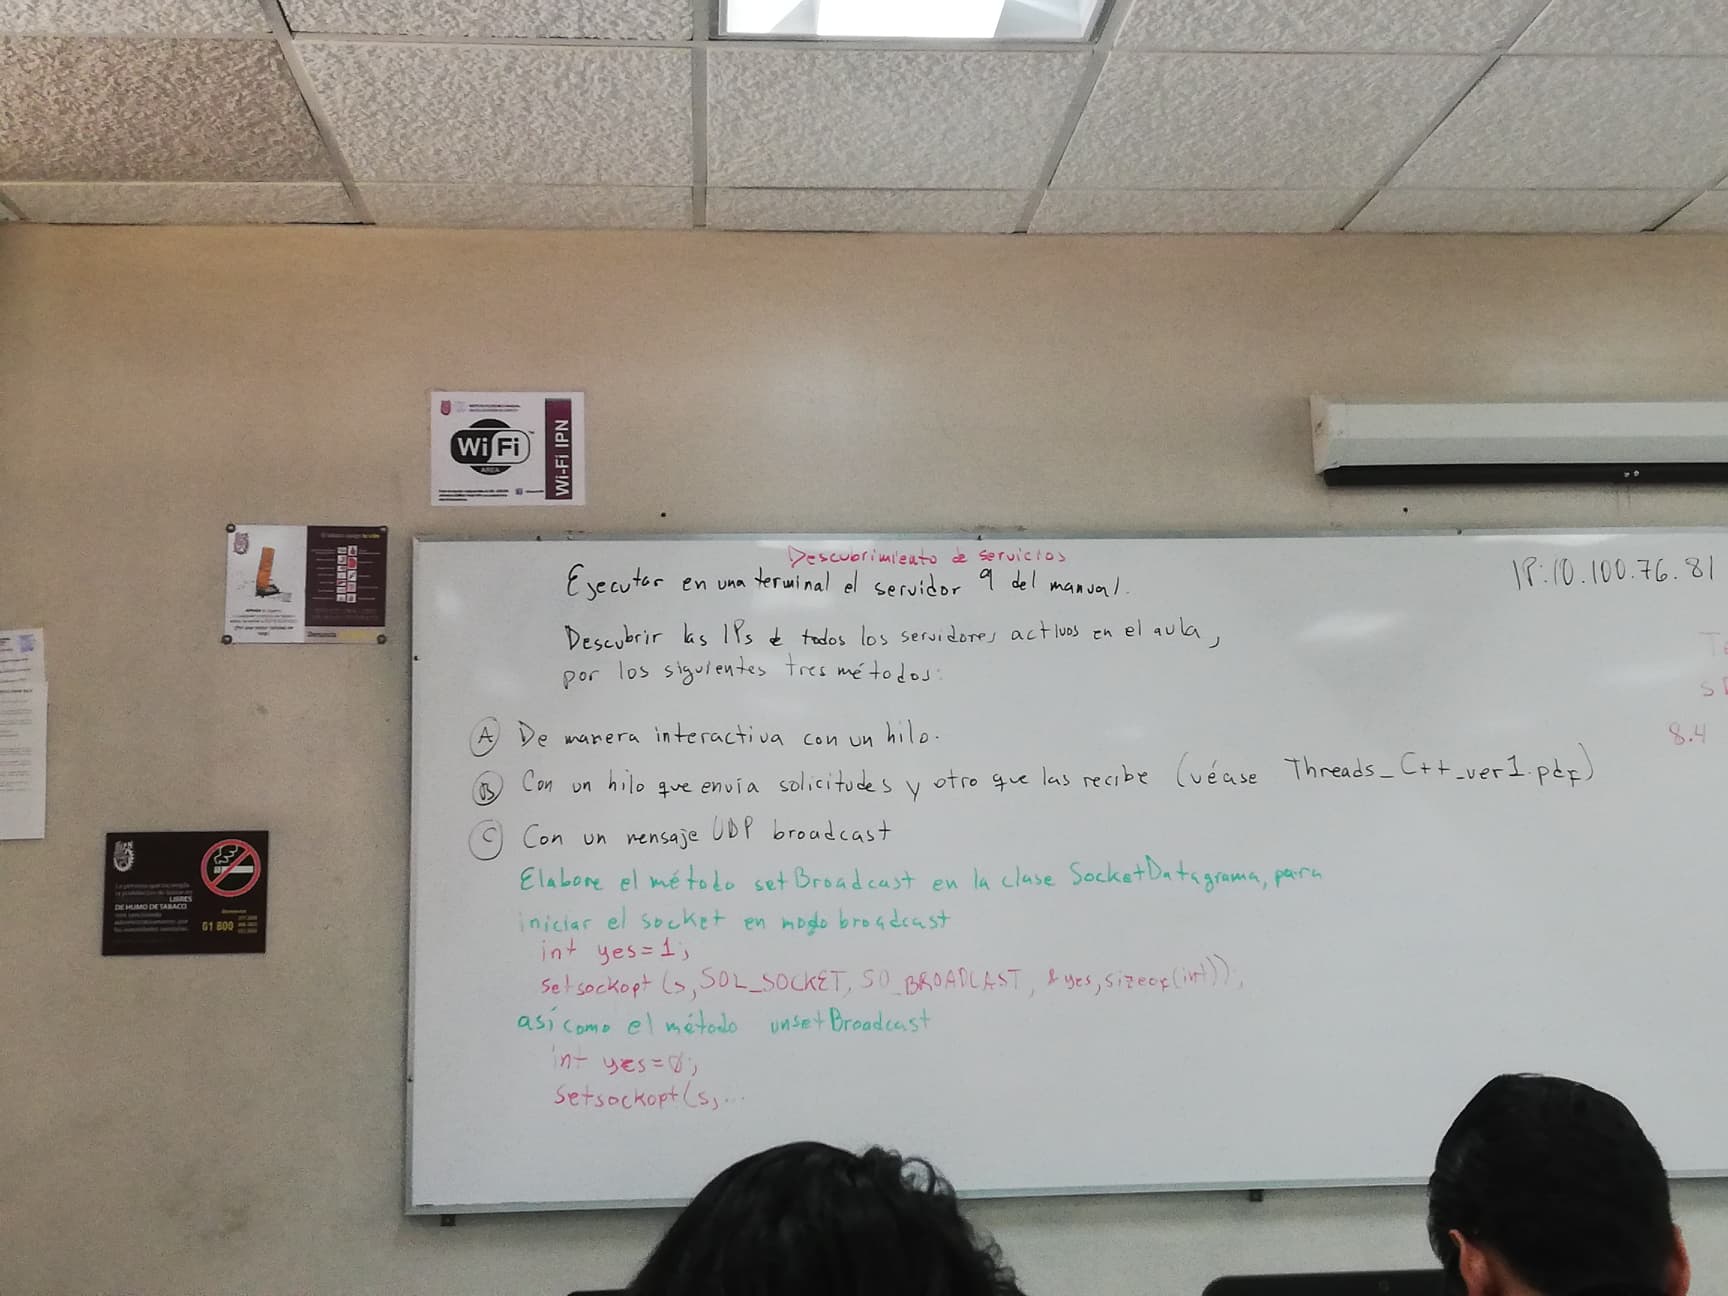 WiFi
AREA
Wi-Fi IPN
Descubrimiento de servicios
Ejecutar en una terminal el servidor 9 del manual.
IP:10.100.76.81
Descubrir las IPs de todos los servidores activos en el aula,
por los siguientes tres métodos:
A De manera interactiva con un hilo.
8.4
B Con un hilo que envía solicitudes y otro que las recibe (véase Threads_C++_ver1.pdf)
C Con un mensaje UDP broadcast
Elabore el método setBroadcast en la clase SocketDatagrama, para
iniciar el socket en modo broadcast
int yes=1;
setsockopt(s,SOL_SOCKET, SO_BROADCAST, &yes,sizeof(int));
así como el método unsetBroadcast
int yes=0;
setsockopt(s,...
LIBRES
DE HUMO DE TABACO
01 800